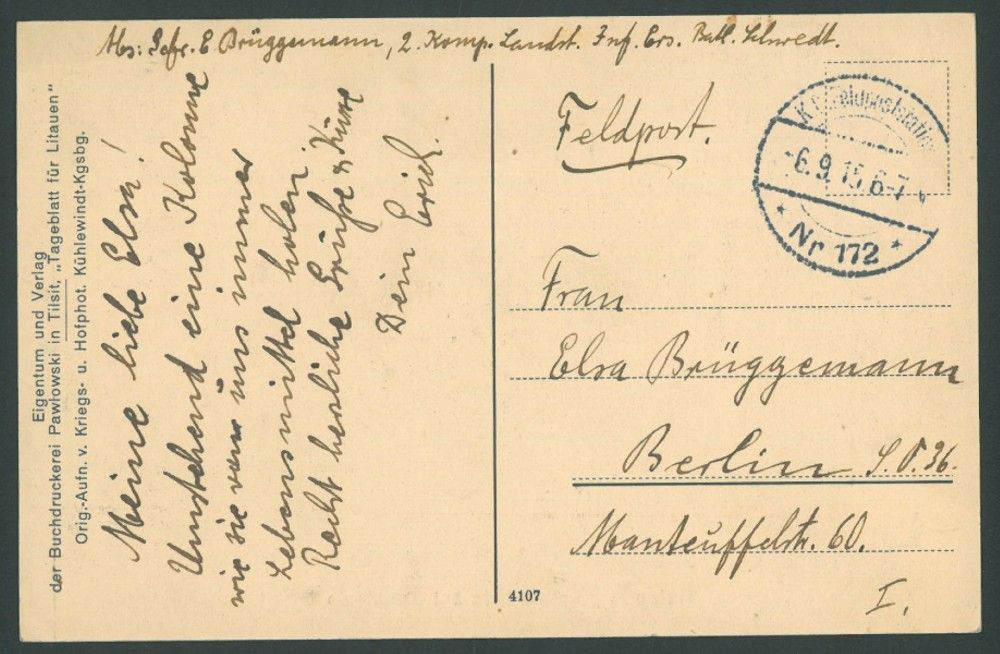 Abs: Gefr. E. Brüggemann, 2. Komp. Landst. Inf. Ers. Batl. Schwedt.
Eigentum und Verlag
der Buchdruckerei Pawlowski in Tilsit, „Tageblatt für Litauen"
Orig.-Aufn. v. Kriegs- u. Hofphot. Kühlewindt-Kgsbg.
Meine liebe Elsa!
Umstehend eine Kolonne
wie sie von uns immer
Lebensmittel holen.
Recht herzliche Grüße & Küsse
Dein Erich.
Feldpost.
K.D. Feldpoststation
-6.9.15.6-7
* Nr 172 *
Frau
Elsa Brüggemann
Berlin S.O. 36.
Manteuffelstr. 60.
I.
4107